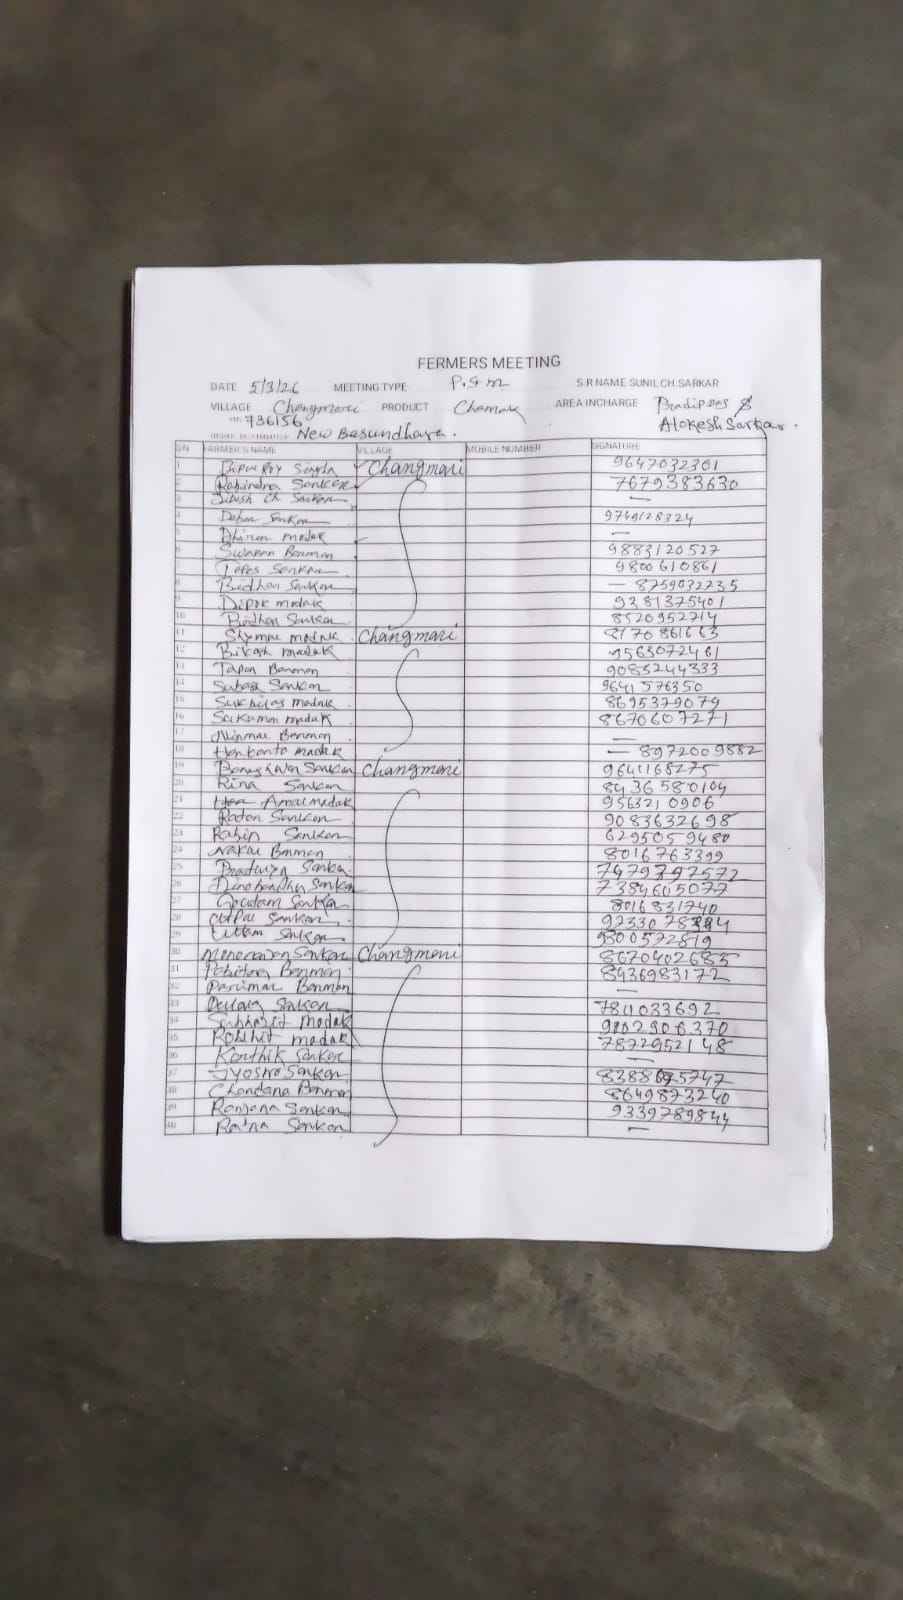 FERMERS MEETING
DATE 5/3/26 MEETING TYPE P.S.M S.R NAME SUNIL CH. SARKAR
VILLAGE Changmari PRODUCT Chamak AREA INCHARGE
736156 Alokesh Sarkar
New Basundhara.
S/N FARMER'S NAME VILLAGE MOBILE NUMBER SIGNATURE
1 Changmari 9647032301
2 Rabindra Sarkar 7679383630
3 —
4 Sarkar 9749128324
5 Dhiren modak —
6 Swapan Barman 9883120527
7 Tapas Sarkar 9800610861
8 Bidhan Sarkar — 8759032235
9 Dipok modak 9381375401
10 Bidhan Sarkar 8520952714
11 modak Changmari 8170861663
12 Bikash modak 9563072461
13 Tapan Barman 9083244333
14 Sarkar 9641576350
15 modak 8695379079
16 Sukumar modak 8670607271
17 Nirmal Barman —
18 modak — 8972009882
19 Sarkar Changmari 9641168275
20 Rina Sarkar 8436580104
21 Amal modak 956321 0906
22 Ratan Sarkar 9083632698
23 Rabin Sarkar 6295059480
24 Barman 8016763399
25 Sarkar 7479392572
26 Sarkar 7384605077
27 Goutam Sarkar 8016831740
28 Sarkar
29 Uttam Sarkar 9800572819
30 Sarkar Changmari 8670402685
31 Barman 8436983172
32 Parimal Barman —
33 Sarkar 7811033692
34 modak 9102906370
35 modak 7872952148
36 Karthik Sarkar —
37 Sarkar
38 Chandana Barman 8649873240
39 Ranjana Sarkar 9339789844
40 Ratna Sarkar —